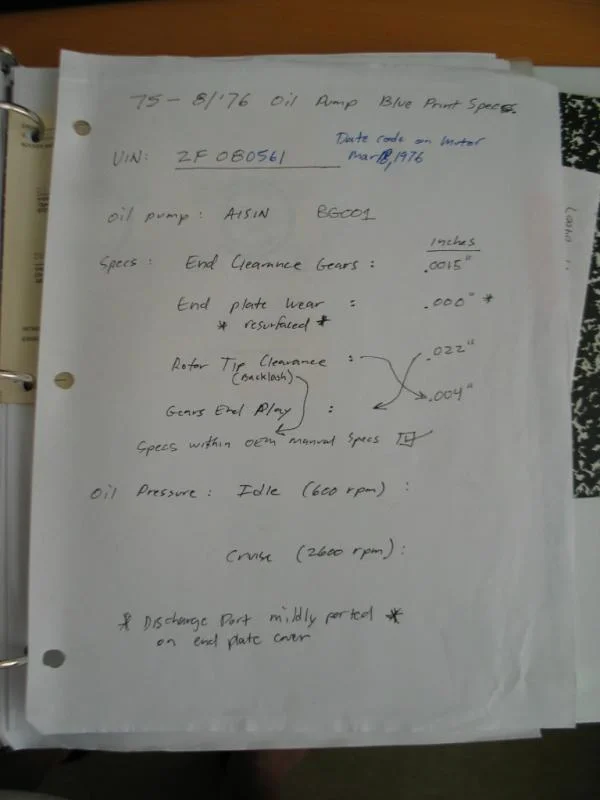 75 - 8/'76 Oil Pump Blue Print Specs.
Date code on motor
VIN: 2F 080561 Mar 18, 1976
oil pump: AISIN BG001
Inches
Specs: End Clearance Gears: .0015"
End plate wear : .000" *
* resurfaced *
Rotor Tip Clearance : .022"
(Backlash)
Gears End Play : .004"
Specs within OEM manual specs ☑
Oil Pressure: Idle (600 rpm) :
Cruise (2600 rpm):
* Discharge Port mildly ported *
on end plate cover